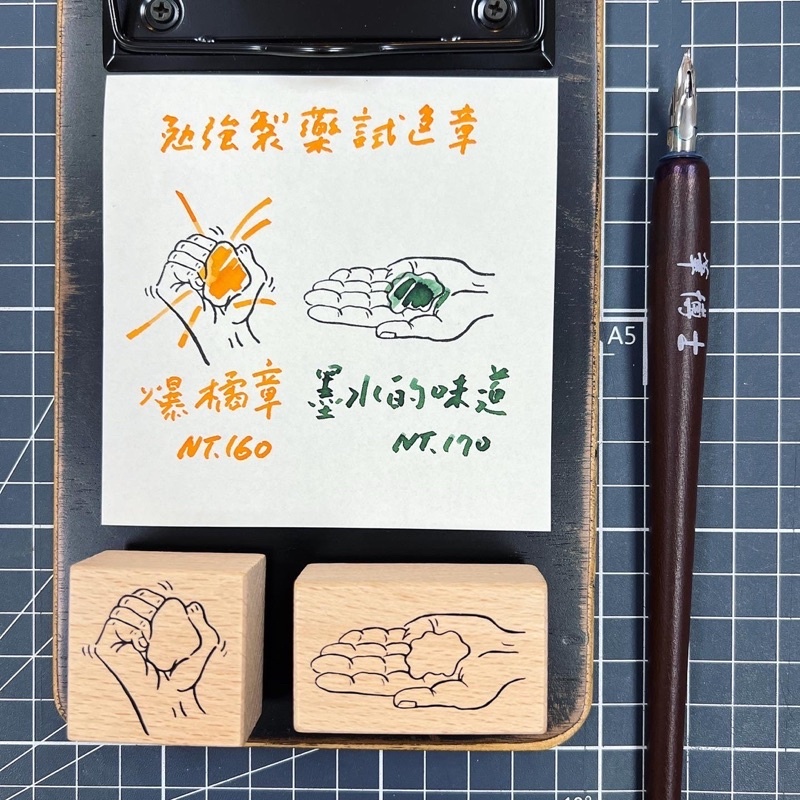 勉強製藥試色章
爆橘章
NT.160
墨水的味道
NT.170
筆博士
A5